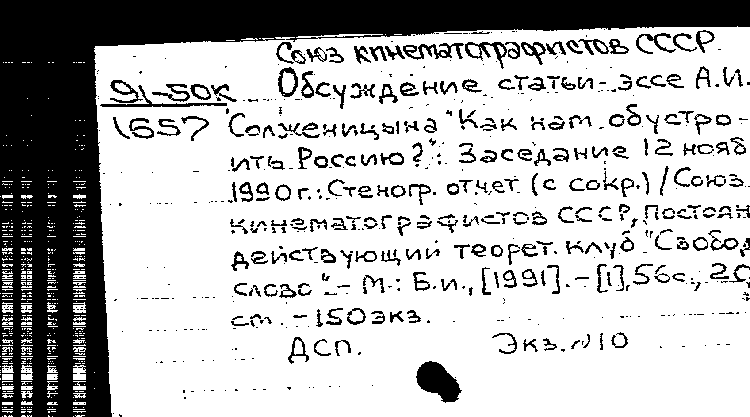 Союз кинематографистов СССР.
91-50к Обсуждение статьи-эссе А.И.
1657 Солженицына "Как нам обустро-
ить Россию?": Заседание 12 нояб
1990г.: Стеногр. отчет (с сокр.) / Союз
кинематографистов СССР, Постоян
действующий теорет. клуб "Свобод
слово". - М.: Б.и., [1991]. - [1], 56с., 20
см. - 150экз.
ДСП. Экз. №10